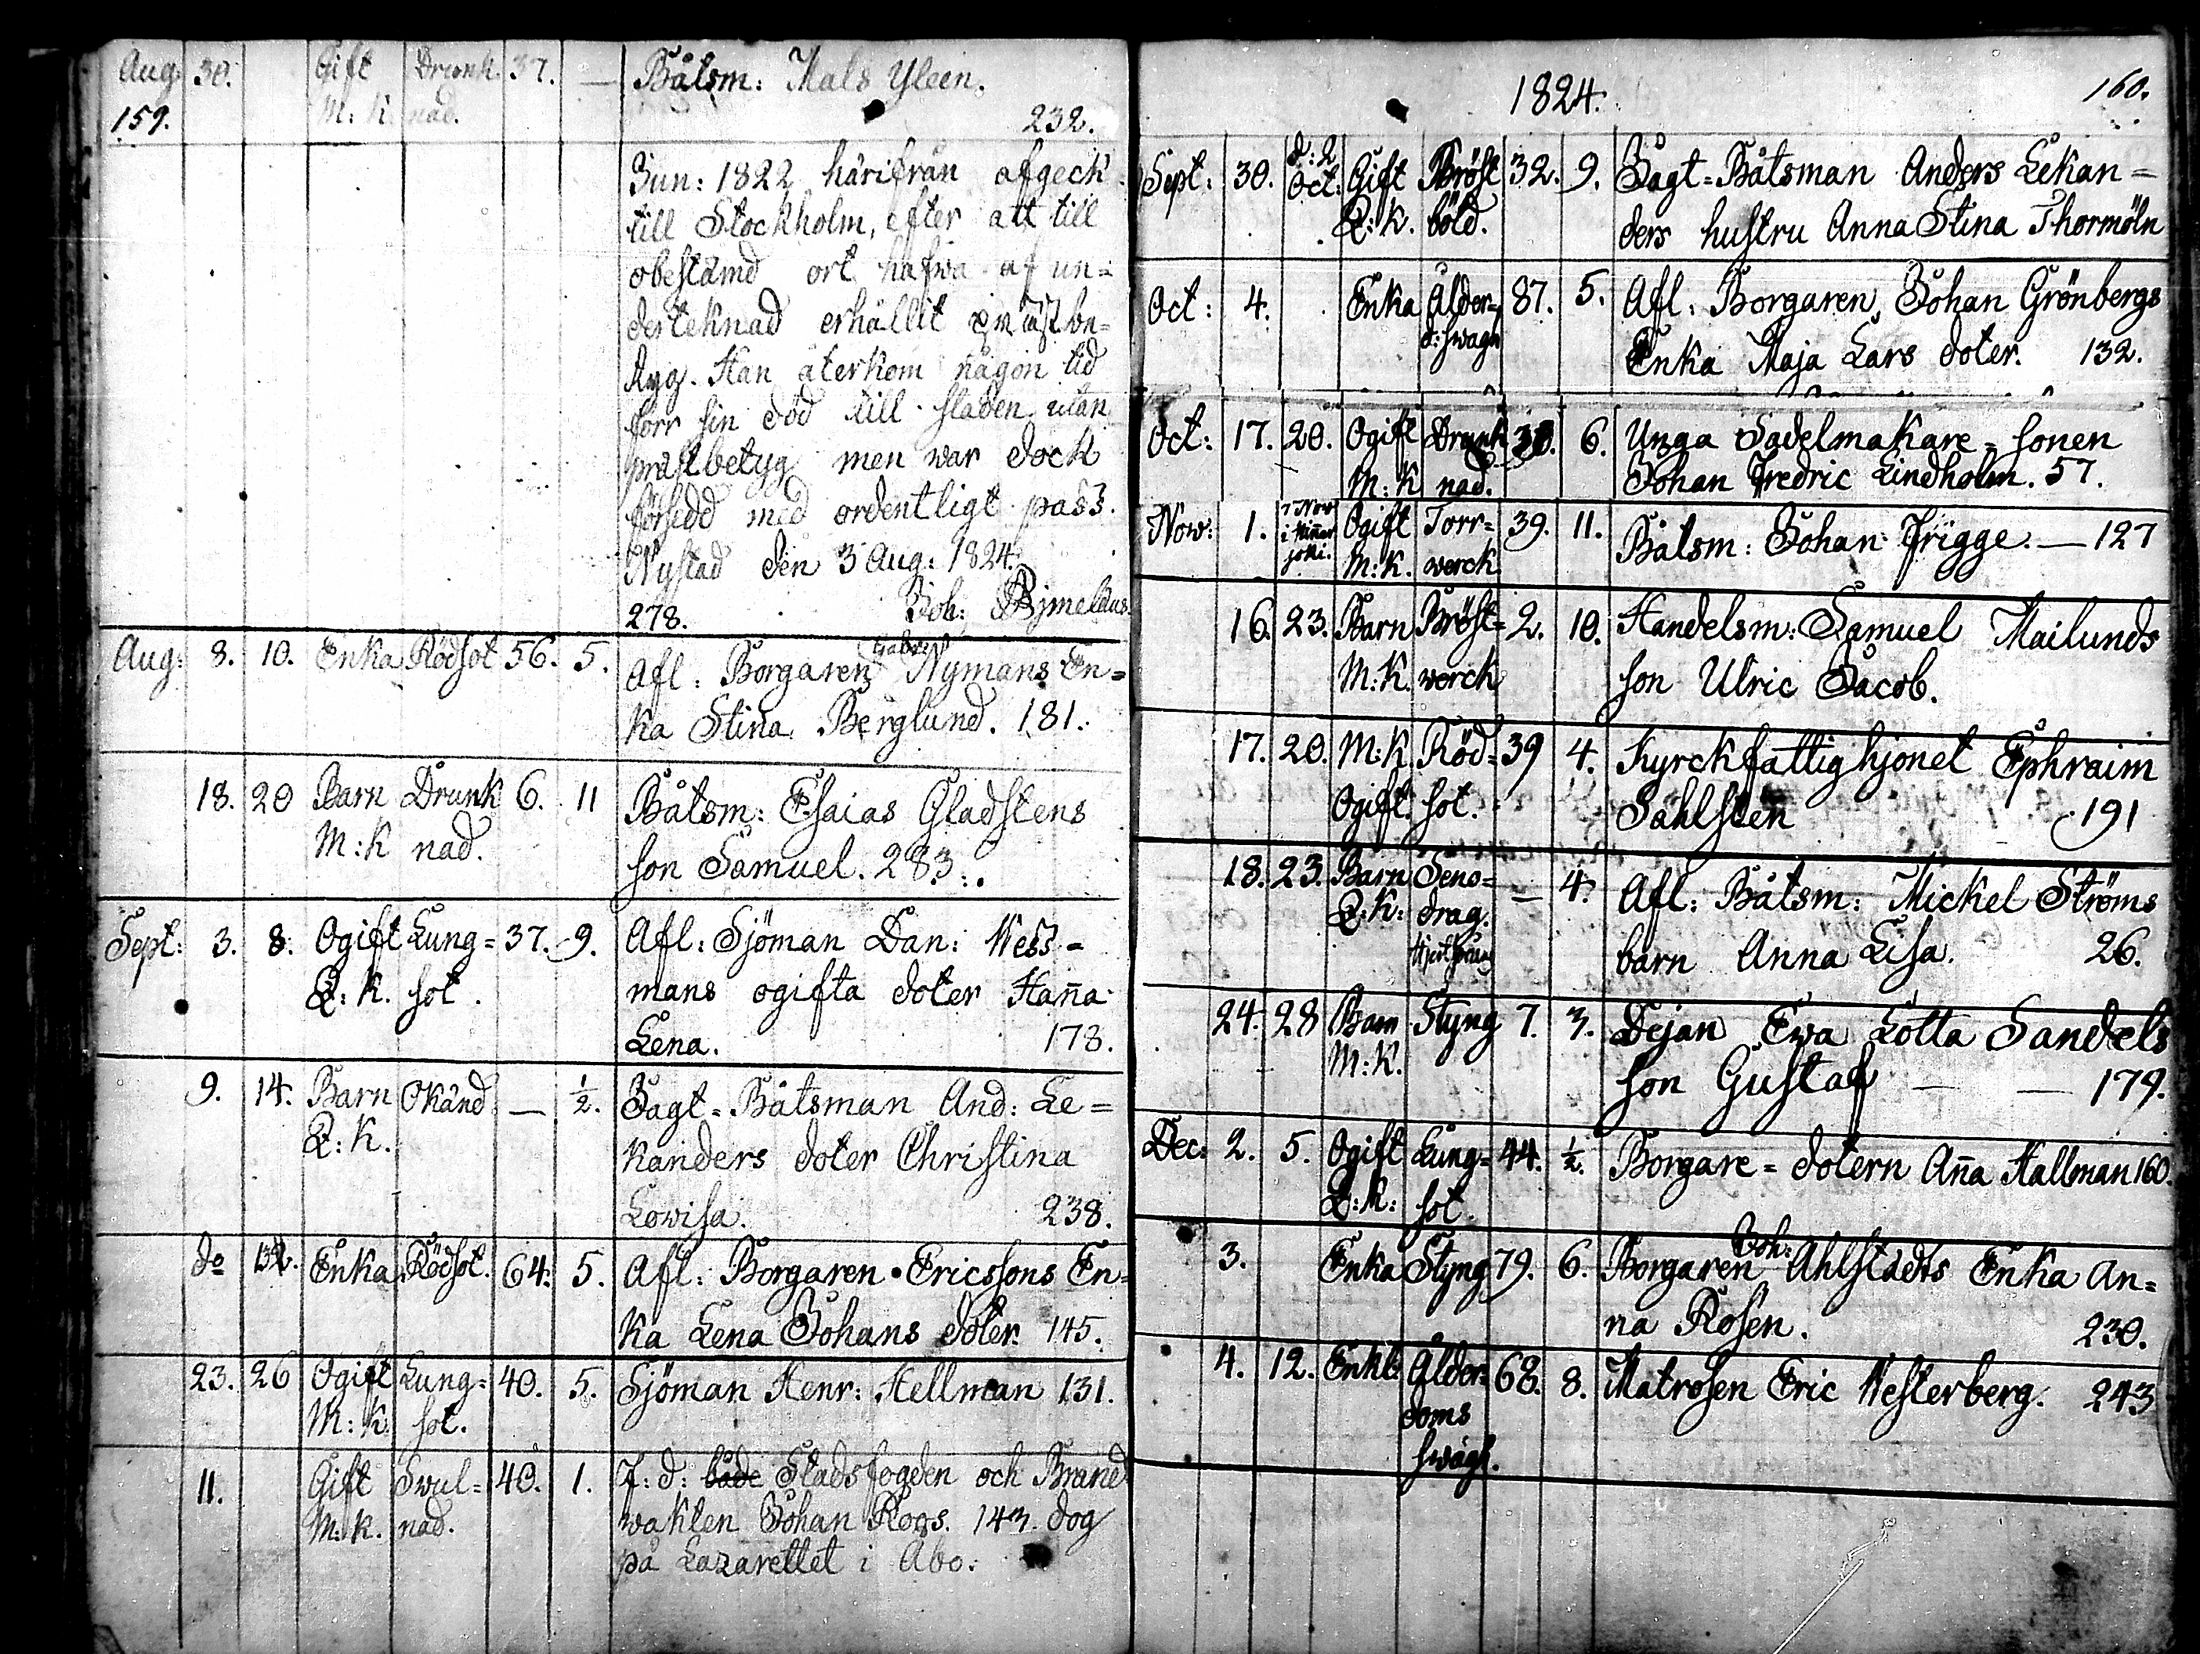 Aug: 30. Gift Drunk 37. — Båtsm: Mats Yleen.
159. M: K. nad. 232.
Jun: 1822 härifrån afgeck
till Stockholm, efter att till
obestämd ort hafwa af un=
derteknad erhållit präst be=
tyg. Han återkom någon tid
förr sin död till staden utan
prästbetyg men war dock
försedd med ordentligt pass.
Nystad den 3 Aug: 1824.
278. Joh:
Aug: 8. 10. Enka Rödsot 56. 5. Afl: Borgaren Nymans En=
ka Stina Berglund. 181.
18. 20 Barn Drunk 6. 11 Båtsm: Esaias Gladstens
M: K nad. son Samuel. 283.
Sept: 3. 8. Ogift Lung= 37. 9. Afl: Sjöman Dan: Wess=
Q: K. sot. mans ogifta doter Hanna
Lena. 178.
9. 14. Barn Okänd — ½. Jagt=Båtsman And: Le=
Q: K. kanders doter Christina
Lowisa. 238.
do Enka Rödsot. 64. 5. Afl: Borgaren Ericssons En=
ka Lena Johans doter. 145.
23. 26 Ogift Lung= 40. 5. Sjöman Henr: Hellman 131.
M: K. sot.
11. Gift Swul= 40. 1. F: d: både Stadsfogden och Brand
M: K. nad. wakten Johan Roos. 143. dog
på Lazarettet i Åbo.
1824. 160.
Sept: 30. d: 2 Oct: Gift Bröst 32. 9. Jagt=Båtsman Anders Lekan=
Q: K. böld. ders hustru Anna Stina Thormöln
Oct: 4. Enka Ålder= 87. 5. Afl: Borgaren Johan Grönbergs
d: swagh Enka Maja Lars doter. 132.
Oct: 17. 20. Ogift Drunk 6. Unga Sadelmakare=sonen
M: K nad. Johan Fredric Lindholm. 57.
Now: 1. 7 Now i Ogift Torr= 39. 11. Båtsm: Johan Frigge. — 127
joki. M: K. werck
16. 23. Barn Bröst= 2. 10. Handelsm: Samuel Mailunds
M: K. werck son Ulric Jacob.
17. 20. M: K. Röd= 39 4. Kyrckfattighjonet Ephraim
Ogift. sot. Sahlsten 191
18. 23. Barn Seno= — 4. Afl: Båtsm: Mickel Ströms
Q: K: drag. barn Anna Lisa. 26.
24. 28 Barn Styng 7. 3. Dejan Ewa Lotta Sandels
M: K. son Gustaf — — 179.
Dec: 2. 5. Ogift Lung= 44. ½. Borgare=dotern Anna Hallman 160.
Q: K: sot.
3. Enka Styng 79. 6. Borgaren Joh: Ahlstedts Enka An=
na Rosen. 230.
4. 12. Enkl: Ålder= 68. 8. Matrosen Eric Westerberg. 243
doms
swagh.